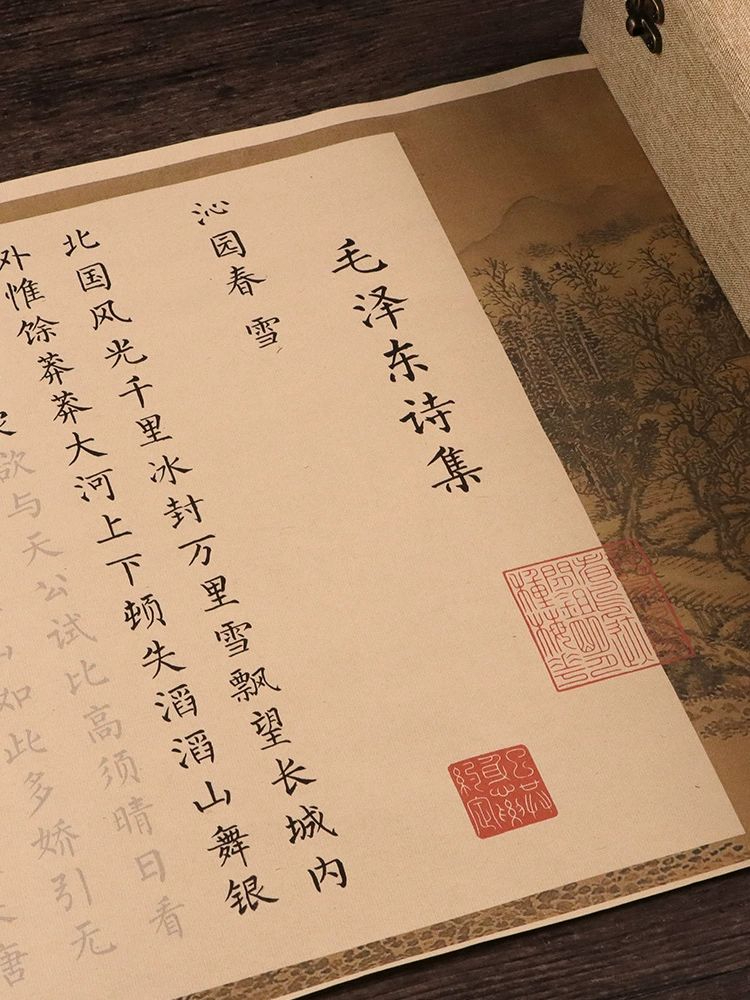 毛泽东诗集
沁园春 雪
北国风光千里冰封万里雪飘望长城内
外惟馀莽莽大河上下顿失滔滔山舞银
欲与天公试比高须晴日看
如此多娇引无
唐